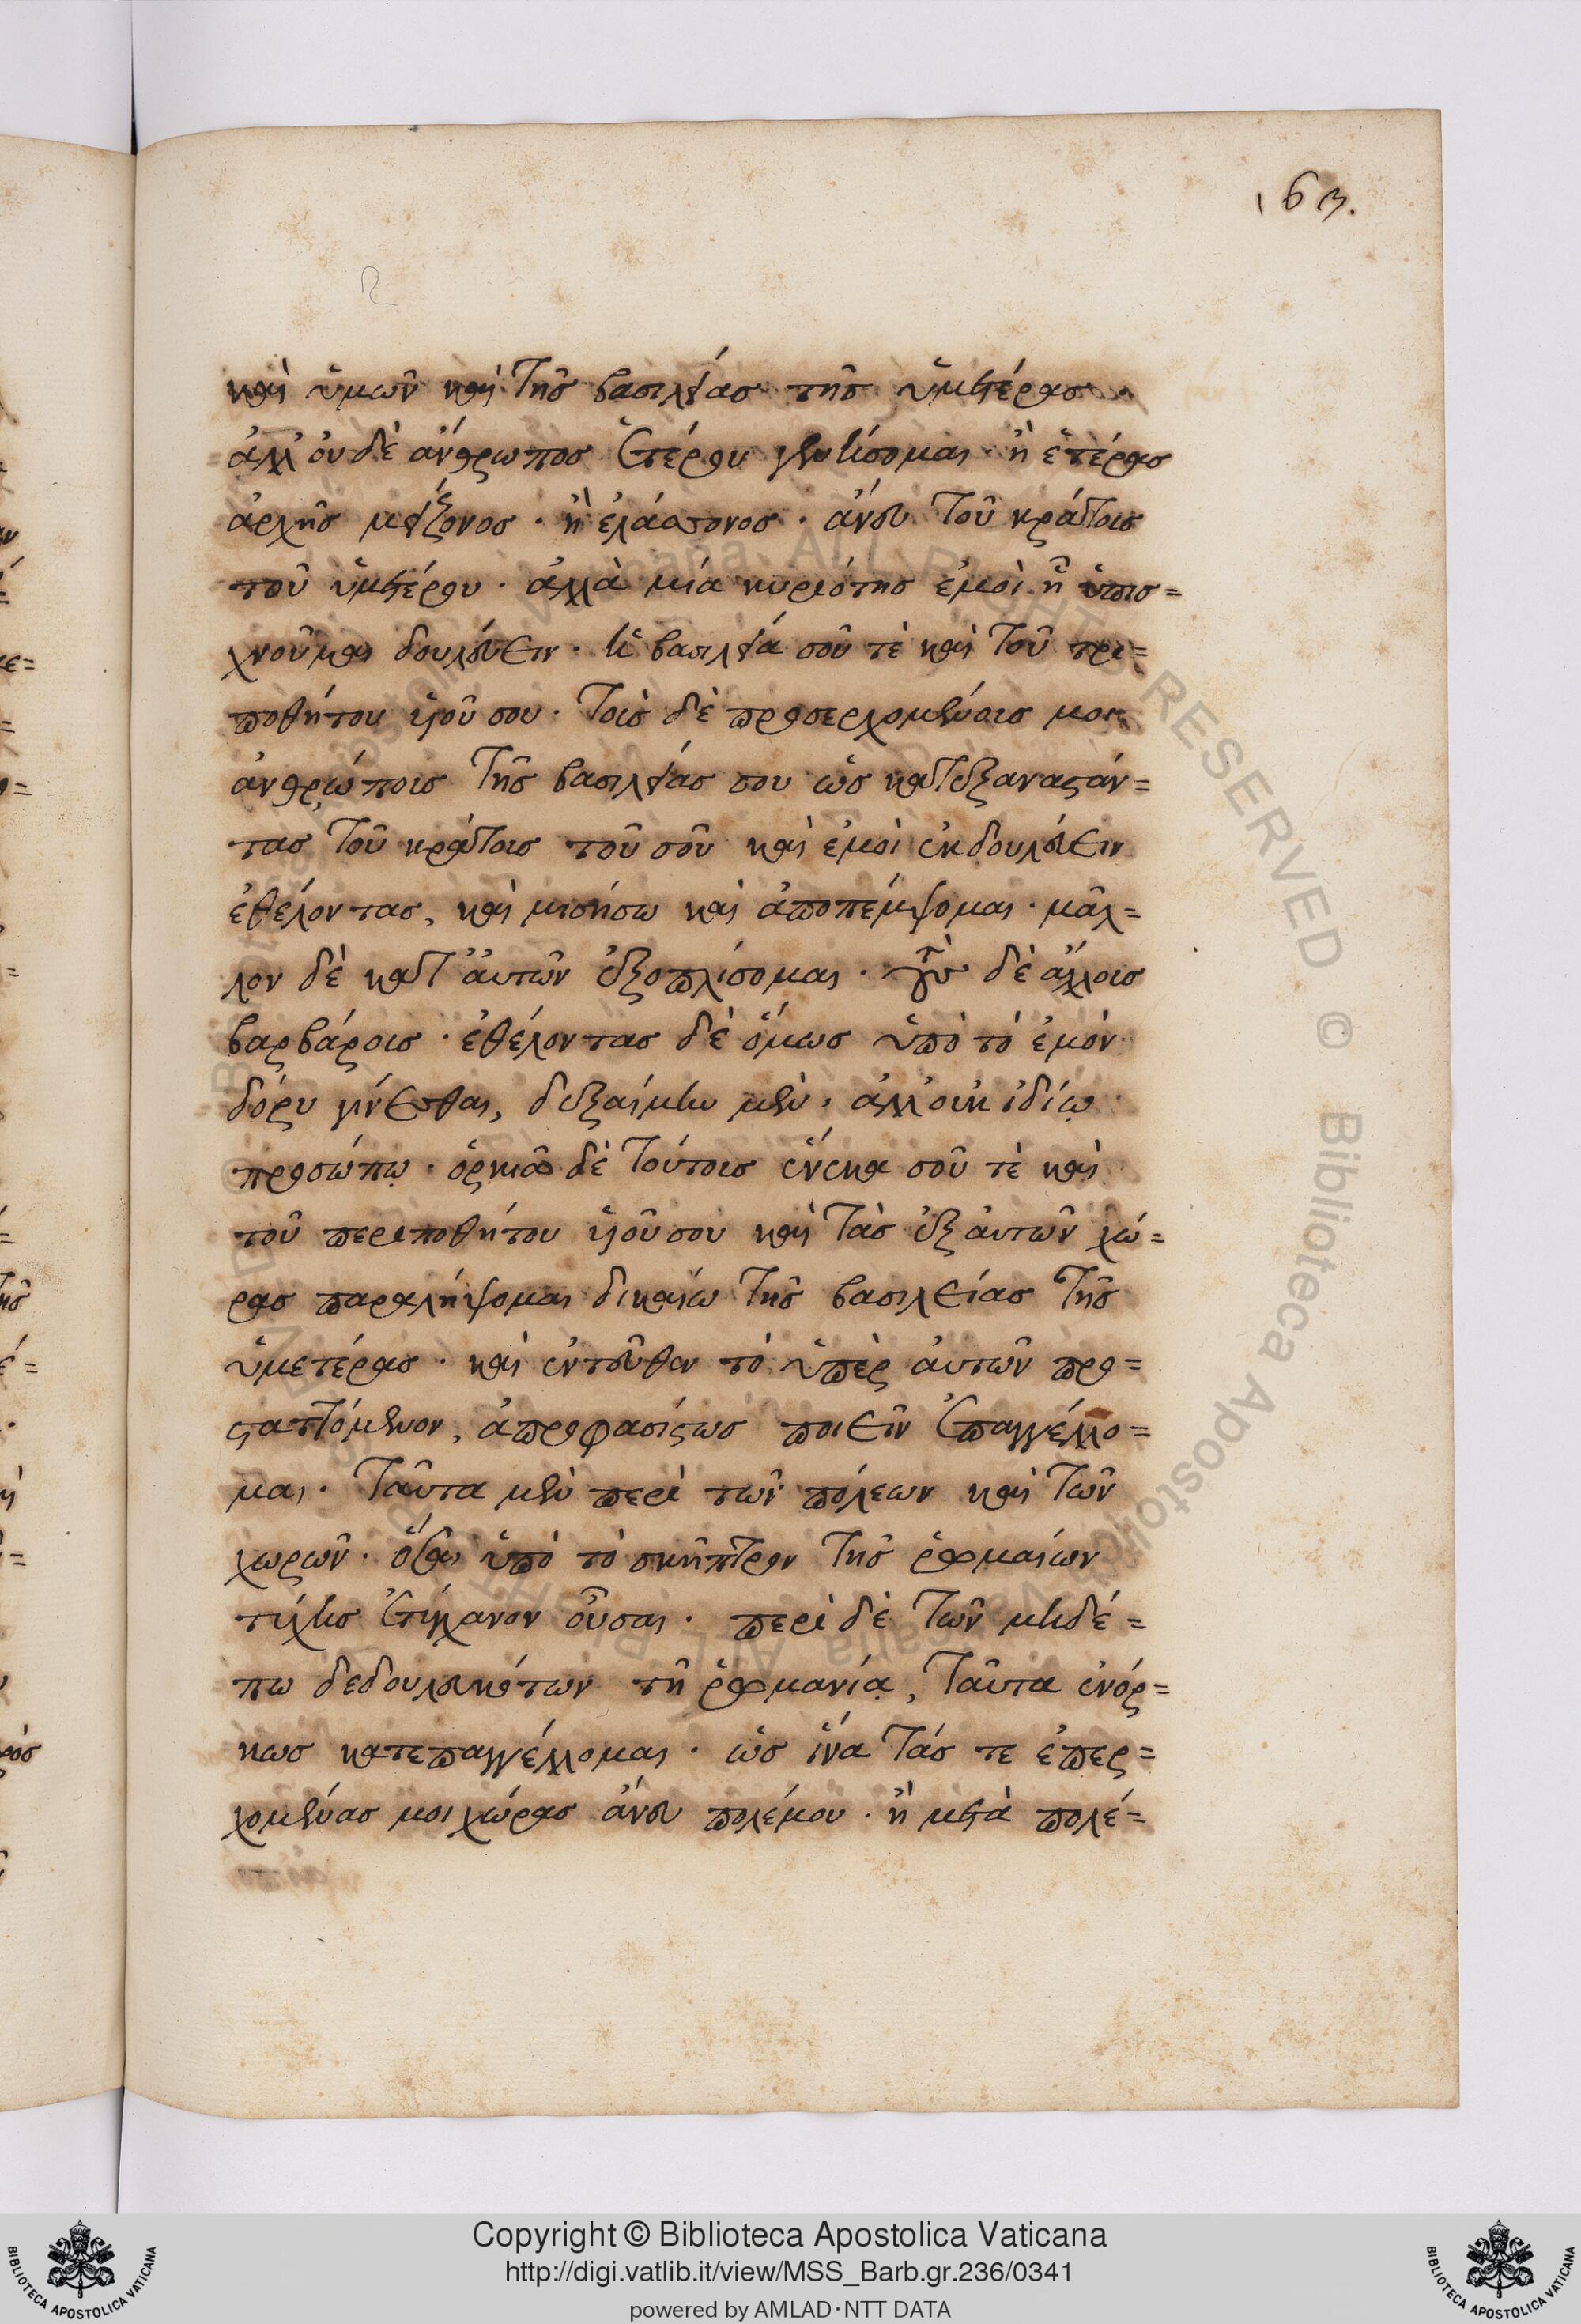 163.
καὶ ὑμῶν καὶ τῆς βασιλείας τῆς ὑμετέρας.
ἀλλ' οὐδὲ ἀνθρωπος ἑτέρου γενήσομαι· ἢ ἑτέρας
ἀρχῆς μείζονος· ἢ ἐλάσσονος· ἄνευ τοῦ κράτους
τοῦ ὑμετέρου· ἀλλὰ μία κυριότης ἐμοὶ ἧ ὑπισ=
χνοῦμαι δουλεύειν· ἡ βασιλεία σοῦ τὲ καὶ τοῦ τρι=
ποθήτου υἱοῦ σου· τοὶς δὲ προσερχομένοις μοι
ἀνθρώποις τῆς βασιλείας σου ὡς κατεξαναστάν=
τας τοῦ κράτους τοῦ σοῦ καὶ ἐμοὶ ἐκδουλεύειν
ἐθέλοντας, καὶ μισήσω καὶ ἀποπέμψομαι· μᾶλ=
λον δὲ κατ' ἀυτῶν ἐξοπλίσομαι· δὲ ἄλλοις
βαρβάροις· ἐθέλοντας δὲ ὅμως ὑπὸ τὸ ἐμὸν
δόρυ γίνεσθαι, δεξαίμην μὲν, ἀλλ' οὐκ ἰδίῳ
προσώπῳ· ὁρκιῶ δὲ τούτοις ἕνεκα σοῦ τὲ καὶ
τοῦ περιποθήτου υἱοῦ σου καὶ τὰς ἐξ ἀυτῶν χώ=
ρας παραλήψομαι δικαίω τῆς βασιλείας τῆς
ὑμετέρας· καὶ ἐντεῦθεν τὸ ὑπὲρ ἀυτῶν προ=
σταττόμενον, ἀπροφασίστως ποιεῖν ἐπαγγέλλο=
μαι· ταῦτα μὲν περὶ τῶν πόλεων καὶ τῶν
χωρῶν· ὅσαι ὑπὸ τὸ σκῆπτρον τῆς ῥωμαίων
τύχης ἐτύγχανον οὖσαι· περὶ δὲ τῶν μηδέ=
πω δεδουλευκότων τῆ ῥωμανίᾳ, ταῦτα ἐνόρ=
κως κατεπαγγέλλομαι· ὡς ἵνα τάς τε ἐπερ=
χομένας μοι χώρας ἄνευ πολέμου· ἢ μετὰ πολέ=
Copyright © Biblioteca Apostolica Vaticana
http://digi.vatlib.it/view/MSS_Barb.gr.236/0341
powered by AMLAD·NTT DATA